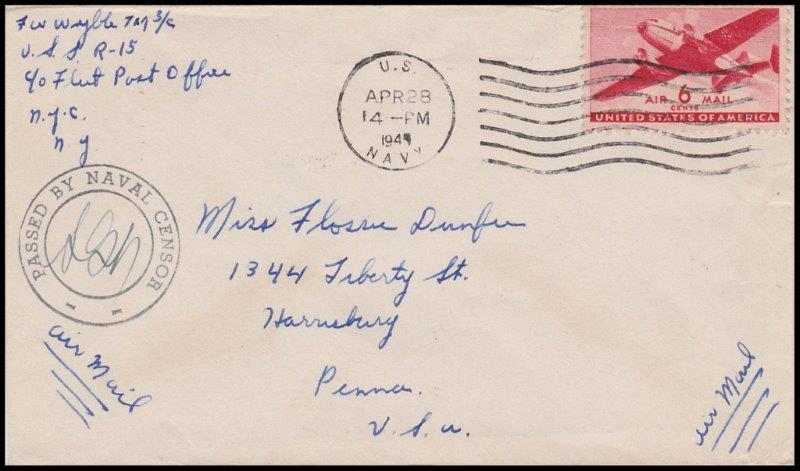 F W Wyble TM 3/c
U.S.S. R-15
c/o Fleet Post Office
N.Y.C.
N.Y
U.S.
APR 28
14 -PM
NAVY
AIR 6 MAIL
CENTS
UNITED STATES OF AMERICA
PASSED BY NAVAL CENSOR
Miss Flossie
1344 Liberty St.
Harrisburg
Penna.
U.S.A.
air Mail
air Mail